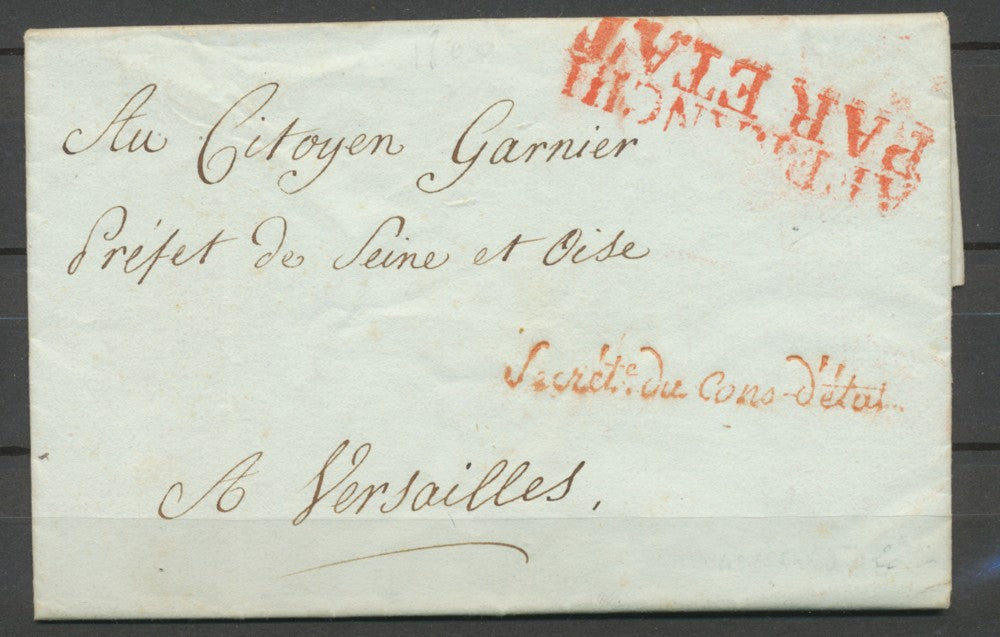 AFFRANCHI
PAR ETAT
Au Citoyen Garnier
Préfet de Seine et Oise
Secrét.e du Cons-d'état
A Versailles.